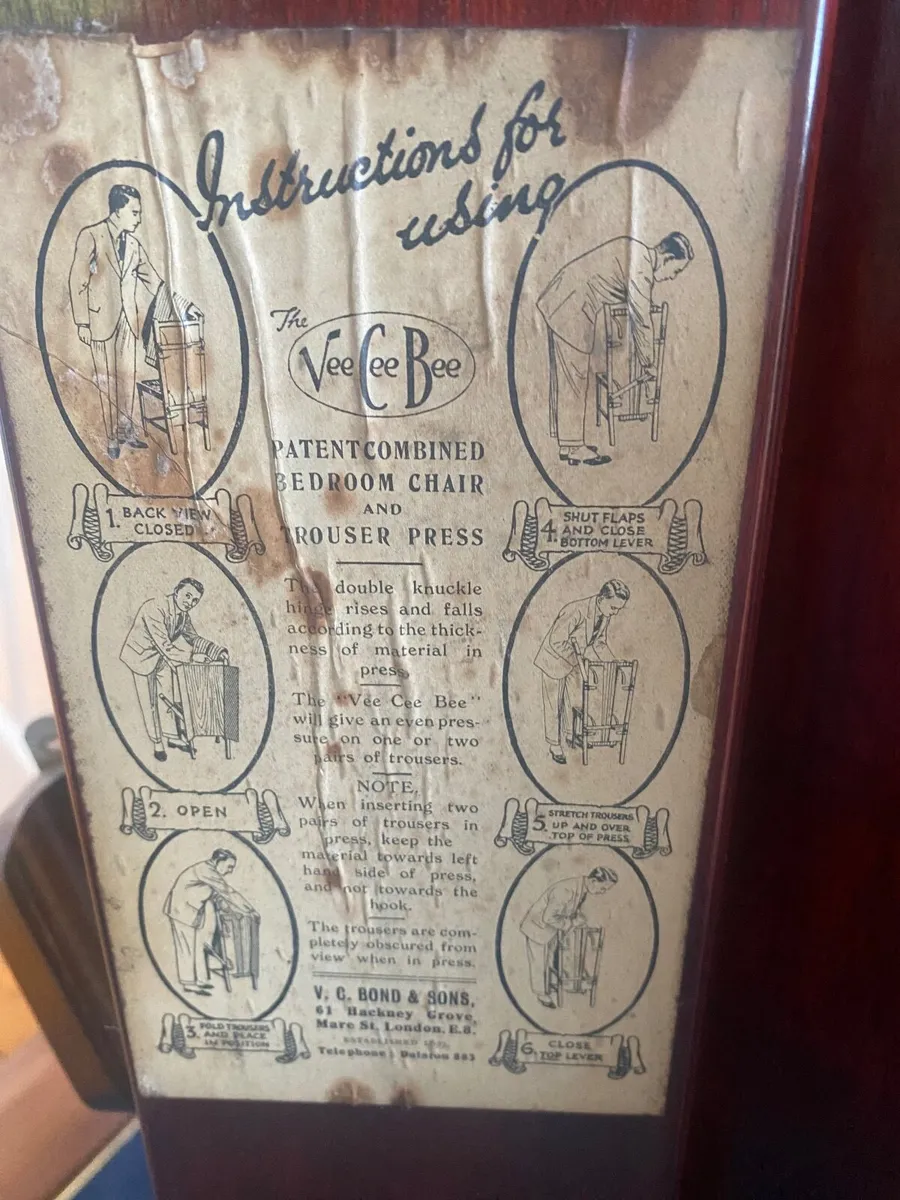 Instructions for
using
The
Vee Cee Bee
PATENT COMBINED
BEDROOM CHAIR
AND
TROUSER PRESS
1. BACK VIEW
CLOSED
2. OPEN
3. FOLD TROUSERS
AND PLACE
IN POSITION
The double knuckle
hinge rises and falls
according to the thick-
ness of material in
press.
The "Vee Cee Bee"
will give an even pres-
sure on one or two
pairs of trousers.
NOTE.
When inserting two
pairs of trousers in
press, keep the
material towards left
hand side of press,
and not towards the
hook.
The trousers are com-
pletely obscured from
view when in press.
V. C. BOND & SONS,
61 Hackney Grove,
Mare St. London, E.8.
ESTABLISHED
Telephone: Dalston 883
4. SHUT FLAPS
AND CLOSE
BOTTOM LEVER
5. STRETCH TROUSERS
UP AND OVER
TOP OF PRESS
6. CLOSE
TOP LEVER